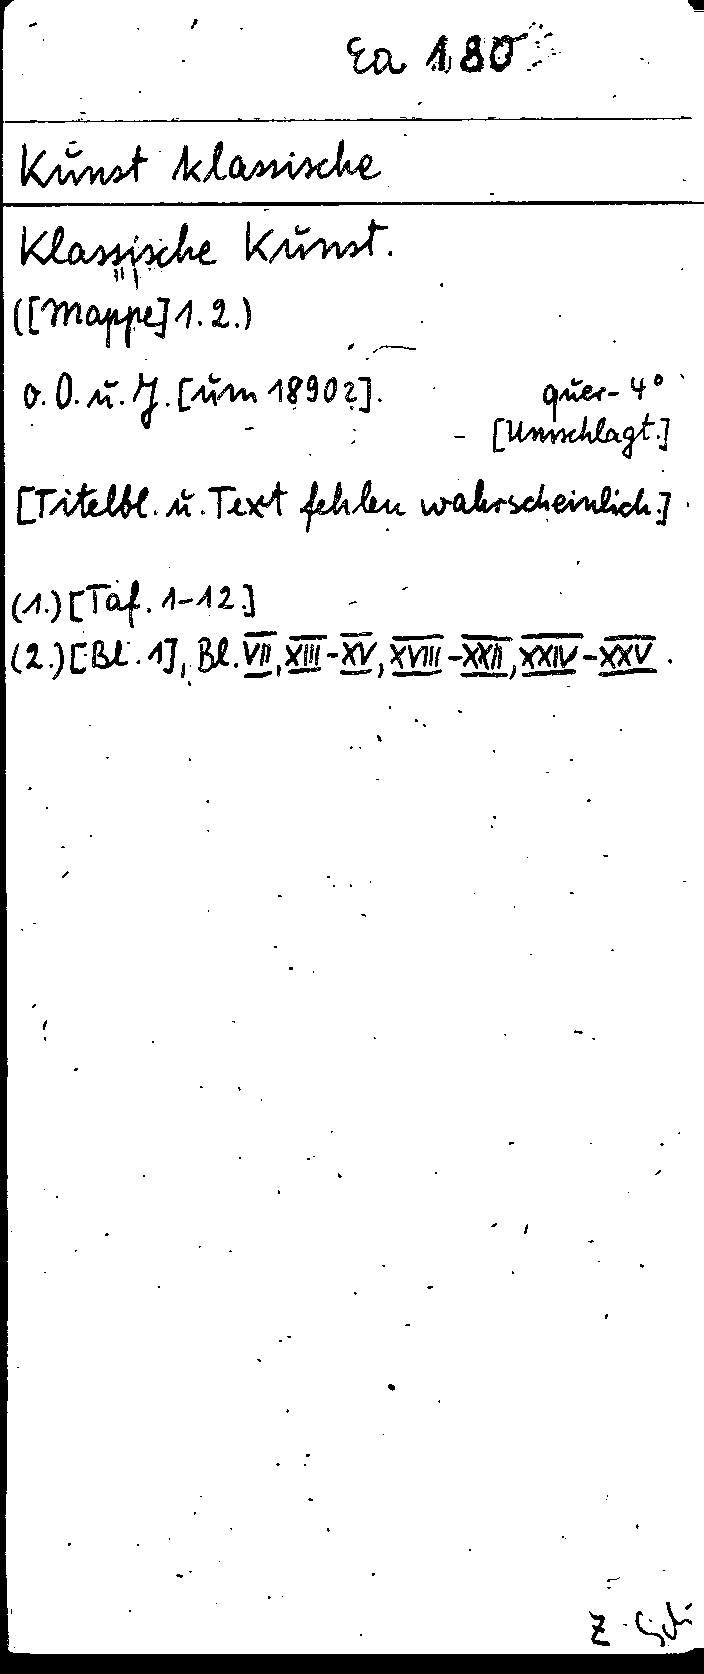 Ea 180
Kunst klassische
Klassische Kunst.
([Mappe] 1. 2.)
o. O. u. J. [um 1890?]. quer-4°
[Umschlagt.]
[Titelbl. u. Text fehlen wahrscheinlich.]
(1.) [Taf. 1-12.]
(2.) [Bl. 1], Bl. VII, XIII-XV, XVIII-XXII, XXIV-XXV.
Z